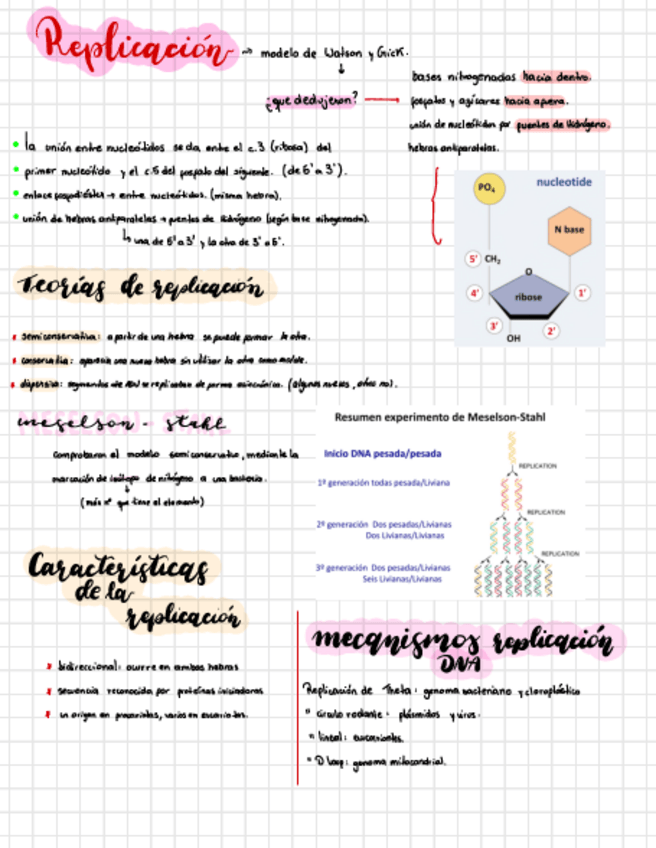 Replicación → modelo de Watson y Crick.
↓
¿que dedujeron?
bases nitrogenadas hacia dentro.
fosfatos y azúcares hacia afuera.
unión de nucleótidos por puentes de Hidrógeno.
hebras antiparalelas.
• la unión entre nucleótidos se da entre el c.3 (ribosa) del
• primer nucleótido y el c.5 del fosfato del siguiente. (de 5' a 3').
• enlace fosfodiéster → entre nucleótidos. (misma hebra).
• unión de hebras antiparalelas → puentes de Hidrógeno (según base nitrogenada).
↳ una de 5' a 3' y la otra de 3' a 5'.
nucleotide
PO4
N base
5' CH2
O
4'
ribose
1'
3'
2'
OH
Teorías de replicación
semiconservativa: a partir de una hebra se puede formar la otra.
conservativa: aparecía una nueva hebra sin utilizar la otra como molde.
dispersiva: segmentos de ADN se replicaban de forma (algunos nuevos, otros no).
meselson - stahl
MESELSON - STAHL
Comprobaron el modelo semiconservativo, mediante la
marcación de isótopo de nitrógeno a una bacteria.
↓
(más nº que tiene el elemento)
Resumen experimento de Meselson-Stahl
Inicio DNA pesada/pesada
REPLICATION
1ª generación todas pesada/Liviana
REPLICATION
2ª generación Dos pesadas/Livianas
Dos Livianas/Livianas
REPLICATION
3ª generación Dos pesadas/Livianas
Seis Livianas/Livianas
Características
de la
replicación
bidireccional: ocurre en ambas hebras
secuencia reconocida por proteínas iniciadoras
un origen en procariotas, varios en eucariotas.
mecanismos replicación
DNA
Replicación de Theta: genoma bacteriano y cloroplástico
" círculo rodante: plásmidos y virus.
" lineal: eucariontes.
" D loop: genoma mitocondrial.